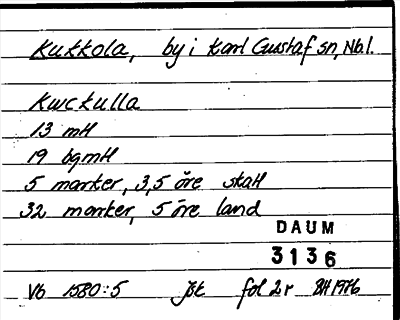 Kukkola, by i Karl Gustaf sn, Nb.l.
Kwckulla
13 mtl
19 bgmtl
5 marker, 3,5 öre skatt
32 marker, 5 öre land
DAUM
3136
Vb 1580:5 jbt fol 2r BH 1976